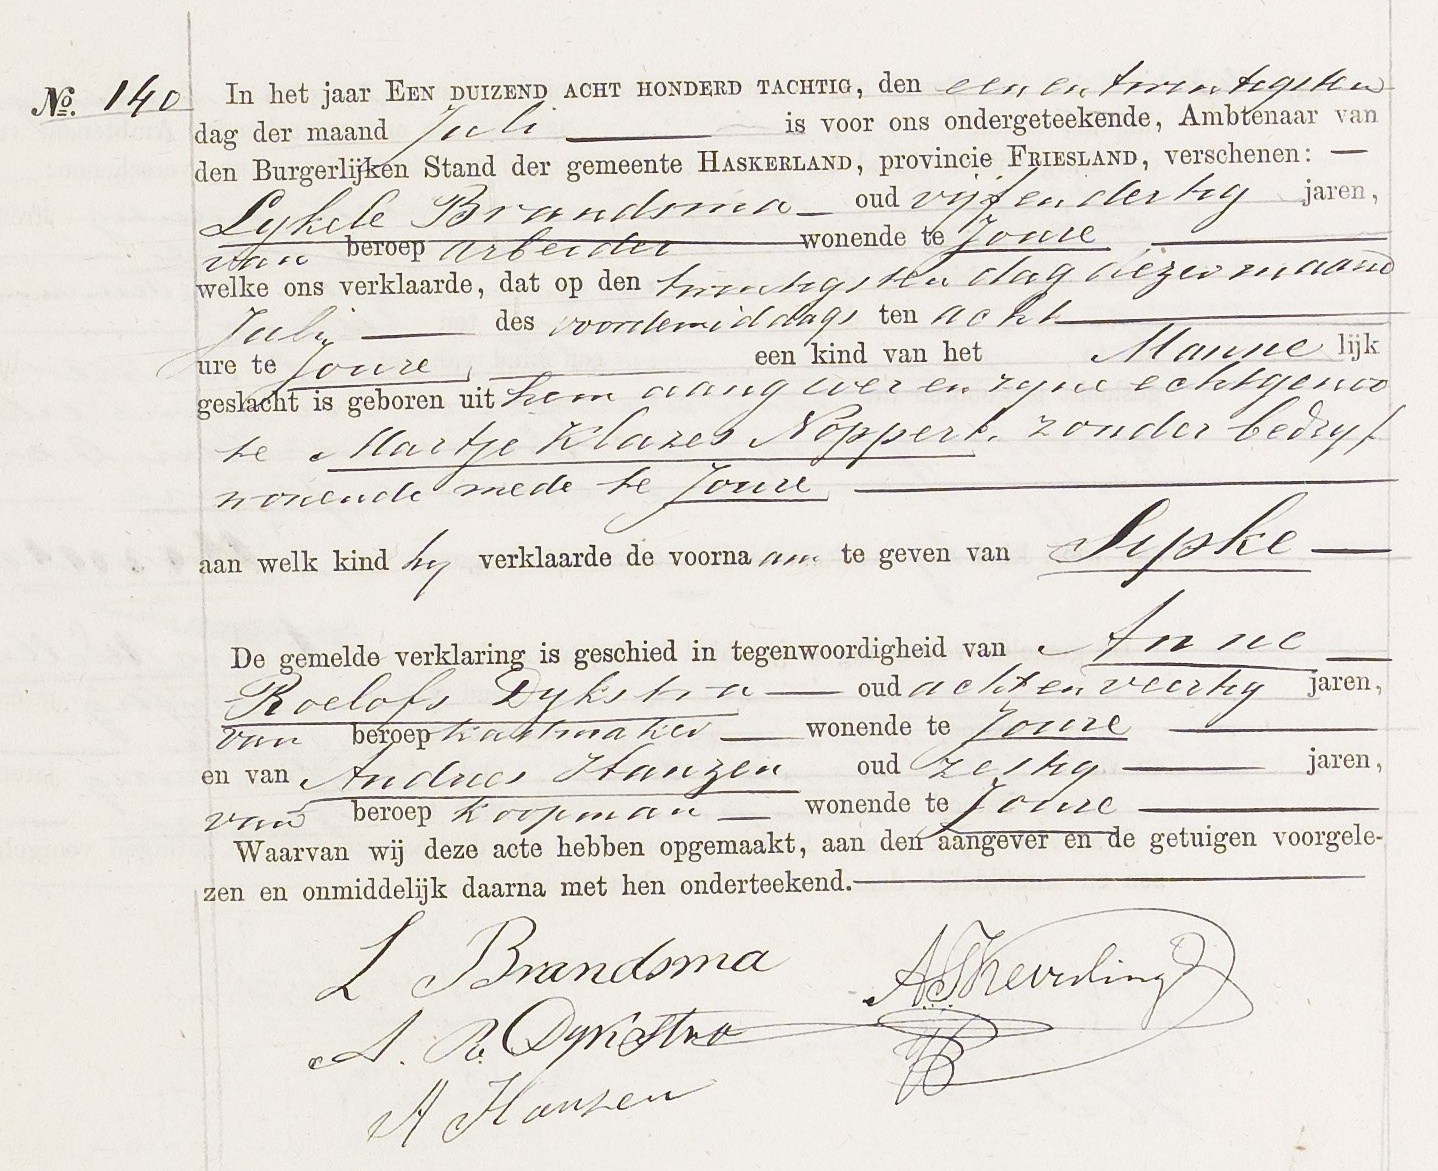 No. 140 In het jaar EEN DUIZEND ACHT HONDERD TACHTIG, den een en twintigsten
dag der maand Juli is voor ons ondergeteekende, Ambtenaar van
den Burgerlijken Stand der gemeente HASKERLAND, provincie FRIESLAND, verschenen: —
Lykele Brandsma — oud vijf en dertig jaren,
van beroep arbeider wonende te Joure
welke ons verklaarde, dat op den twintigsten dag dezer maand
Juli — des voordemiddags ten acht
ure te Joure, een kind van het Manne lijk
geslacht is geboren uit hem aangever en zyne echtgenoo
te Martje Klazes Noppert, zonder bedryf
wonende mede te Joure
aan welk kind hy verklaarde de voorna am te geven van Sypke —
De gemelde verklaring is geschied in tegenwoordigheid van Anne —
Roelofs Dykstra — oud acht en veertig jaren,
van beroep kastmaker — wonende te Joure
en van Andries Hanzen oud zestig — jaren,
van beroep koopman — wonende te Joure
Waarvan wij deze acte hebben opgemaakt, aan den aangever en de getuigen voorgele-
zen en onmiddelijk daarna met hen onderteekend.—
L Brandsma
A. R. Dykstra
A Hanzen